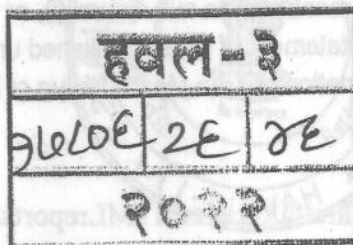 हवल-३
१७८०६ २६ ४६
२०२२